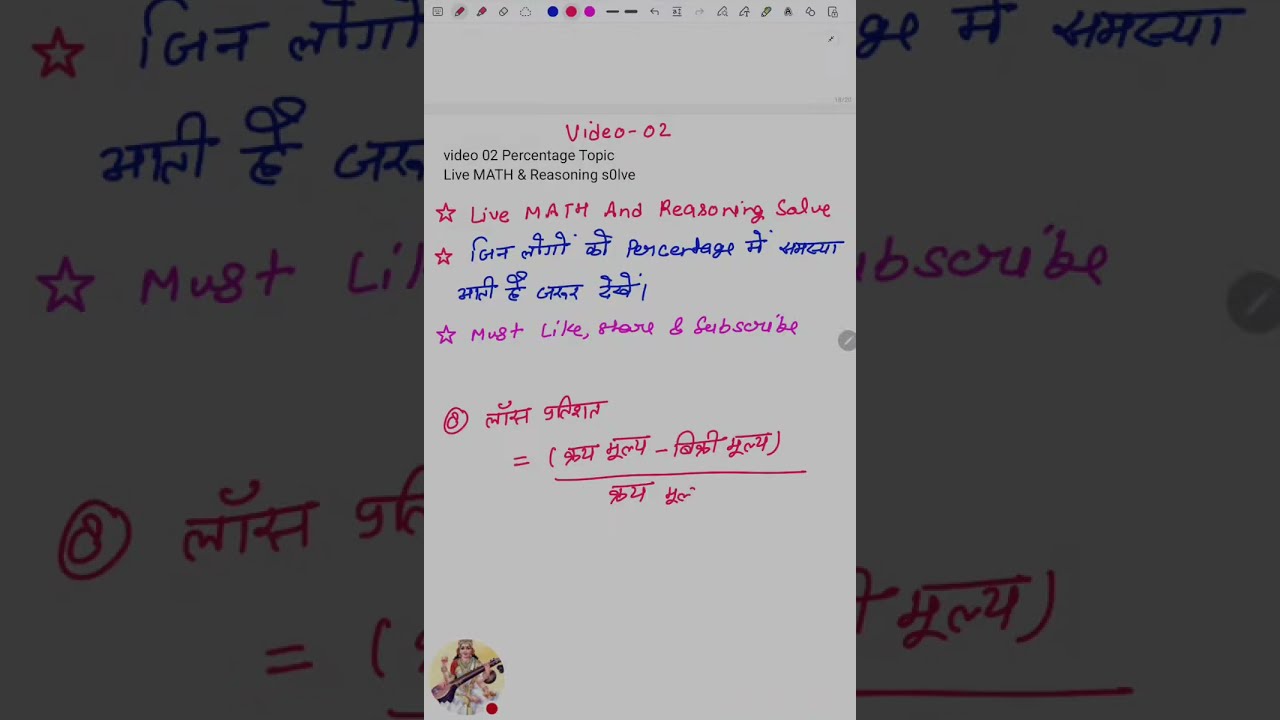 18/20
Video-02
video 02 Percentage Topic
Live MATH & Reasoning s0lve
☆ Live MATH And Reasoning Solve
☆ जिन लोगों को Percentage में समस्या
आती है जरूर देखें।
☆ Must Like, share & Subscribe
⑧ लॉस प्रतिशत
= (क्रय मूल्य - बिक्री मूल्य)
क्रय मूल